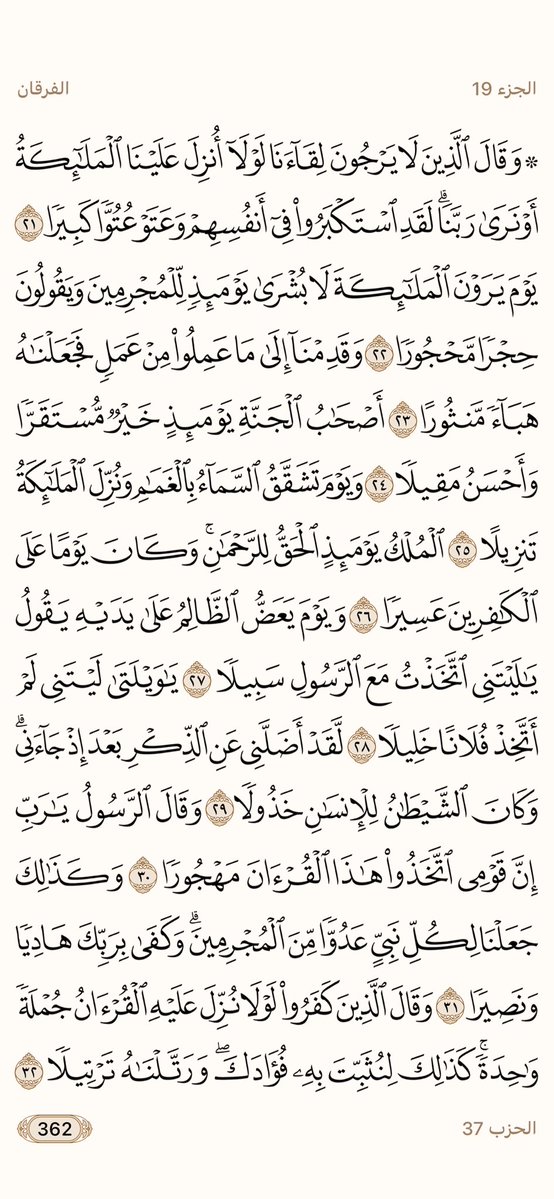 الجزء 19 الفرقان
۞ وَقَالَ ٱلَّذِينَ لَا يَرۡجُونَ لِقَآءَنَا لَوۡلَآ أُنزِلَ عَلَيۡنَا ٱلۡمَلَٰٓئِكَةُ
أَوۡ نَرَىٰ رَبَّنَاۗ لَقَدِ ٱسۡتَكۡبَرُواْ فِيٓ أَنفُسِهِمۡ وَعَتَوۡ عُتُوّٗا كَبِيرٗا ٢١
يَوۡمَ يَرَوۡنَ ٱلۡمَلَٰٓئِكَةَ لَا بُشۡرَىٰ يَوۡمَئِذٖ لِّلۡمُجۡرِمِينَ وَيَقُولُونَ
حِجۡرٗا مَّحۡجُورٗا ٢٢ وَقَدِمۡنَآ إِلَىٰ مَا عَمِلُواْ مِنۡ عَمَلٖ فَجَعَلۡنَٰهُ
هَبَآءٗ مَّنثُورًا ٢٣ أَصۡحَٰبُ ٱلۡجَنَّةِ يَوۡمَئِذٍ خَيۡرٞ مُّسۡتَقَرّٗا
وَأَحۡسَنُ مَقِيلٗا ٢٤ وَيَوۡمَ تَشَقَّقُ ٱلسَّمَآءُ بِٱلۡغَمَٰمِ وَنُزِّلَ ٱلۡمَلَٰٓئِكَةُ
تَنزِيلًا ٢٥ ٱلۡمُلۡكُ يَوۡمَئِذٍ ٱلۡحَقُّ لِلرَّحۡمَٰنِۚ وَكَانَ يَوۡمًا عَلَى
ٱلۡكَٰفِرِينَ عَسِيرٗا ٢٦ وَيَوۡمَ يَعَضُّ ٱلظَّالِمُ عَلَىٰ يَدَيۡهِ يَقُولُ
يَٰلَيۡتَنِي ٱتَّخَذۡتُ مَعَ ٱلرَّسُولِ سَبِيلٗا ٢٧ يَٰوَيۡلَتَىٰ لَيۡتَنِي لَمۡ
أَتَّخِذۡ فُلَانًا خَلِيلٗا ٢٨ لَّقَدۡ أَضَلَّنِي عَنِ ٱلذِّكۡرِ بَعۡدَ إِذۡ جَآءَنِيۗ
وَكَانَ ٱلشَّيۡطَٰنُ لِلۡإِنسَٰنِ خَذُولٗا ٢٩ وَقَالَ ٱلرَّسُولُ يَٰرَبِّ
إِنَّ قَوۡمِي ٱتَّخَذُواْ هَٰذَا ٱلۡقُرۡءَانَ مَهۡجُورٗا ٣٠ وَكَذَٰلِكَ
جَعَلۡنَا لِكُلِّ نَبِيٍّ عَدُوّٗا مِّنَ ٱلۡمُجۡرِمِينَۗ وَكَفَىٰ بِرَبِّكَ هَادِيٗا
وَنَصِيرٗا ٣١ وَقَالَ ٱلَّذِينَ كَفَرُواْ لَوۡلَا نُزِّلَ عَلَيۡهِ ٱلۡقُرۡءَانُ جُمۡلَةٗ
وَٰحِدَةٗۚ كَذَٰلِكَ لِنُثَبِّتَ بِهِۦ فُؤَادَكَۖ وَرَتَّلۡنَٰهُ تَرۡتِيلٗا ٣٢
الحزب 37 362